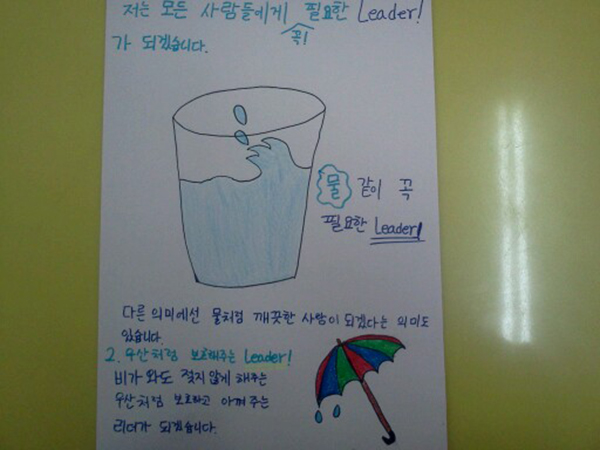 저는 모든 사람들에게 필요한 Leader!
꼭!
가 되겠습니다.
물 같이 꼭
필요한 Leader!
다른 의미에선 물처럼 깨끗한 사람이 되겠다는 의미도
있습니다.
2. 우산처럼 보호해주는 Leader!
비가 와도 젖지않게 해주는
우산처럼 보호하고 아껴주는
리더가 되겠습니다.